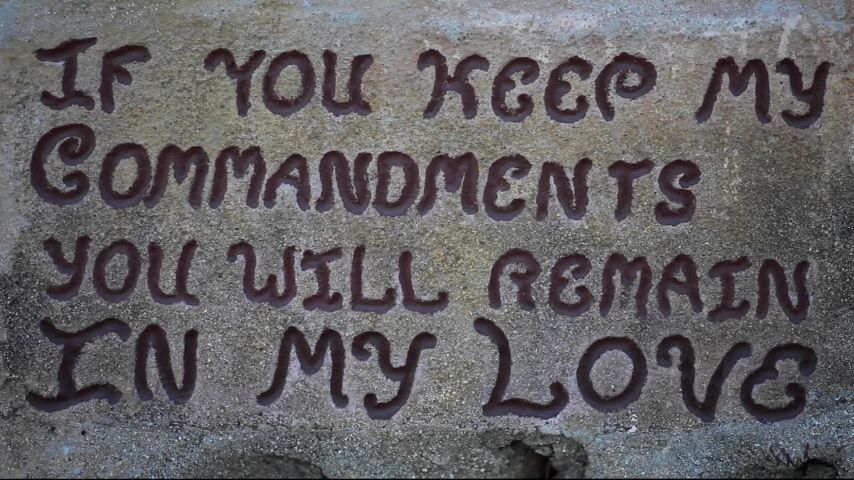 If you Keep My
Commandments
you will remain
In My Love